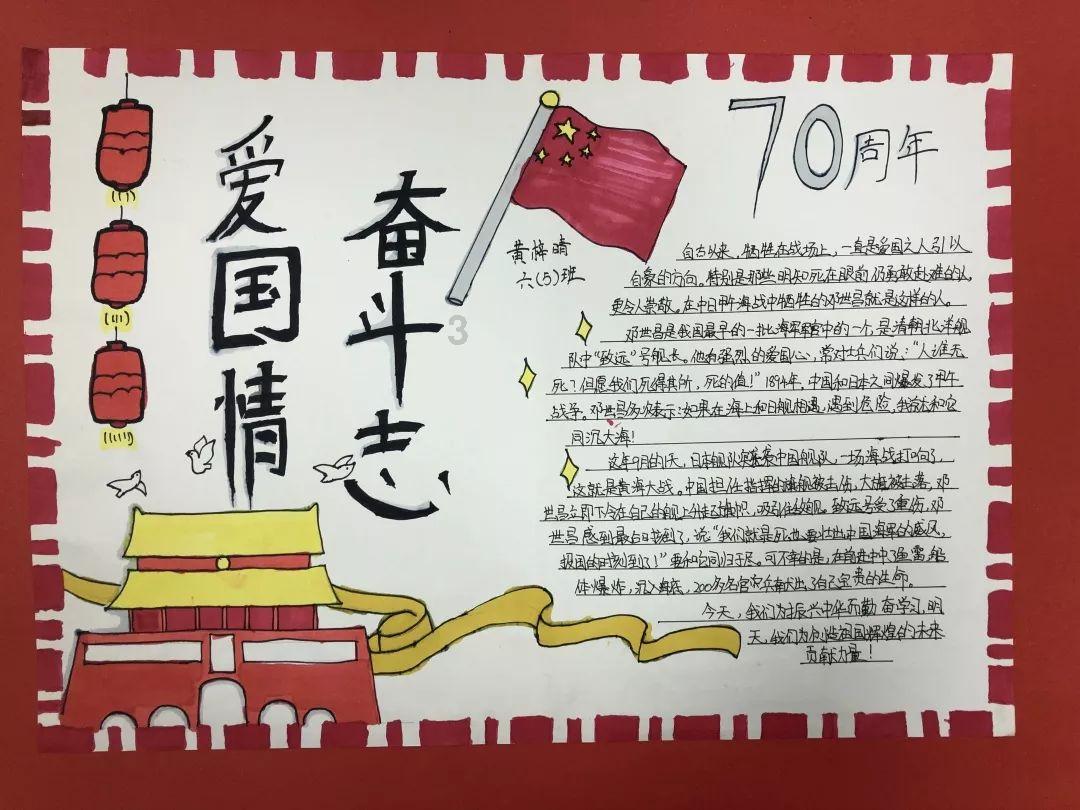 爱国情
奋斗志
70周年
黄梓晴
六(5)班
3
自古以来，牺牲在战场上，一直是爱国之人引以
自豪的方向。特别是那些明知死在眼前仍勇敢赴难的人，
更令人崇敬。在中日甲午海战中牺牲的邓世昌就是这样的人。
邓世昌是我国最早的一批海军军官中的一个，是清朝北洋舰
队中“致远”号舰长。他有强烈的爱国心，常对士兵们说：“人谁无
死？但愿我们死得其所，死的值！”1894年，中国和日本之间爆发了甲午
战争。邓世昌多次表示：如果在海上和日舰相遇，遇到危险，我就和它
同沉大海！
这年9月的1天，日本舰队突袭中国舰队，一场海战打响了，
这就是黄海大战。中国担任指挥的旗舰被击伤，大旗被击落，邓
世昌立即下令在自己的舰上升起旗帜，吸引住敌舰。致远号受了重伤，邓
世昌感到最后时刻到了，说“我们就是死，也要壮出中国海军的威风，
报国的时刻到了！”要和它同归于尽。可不幸的是，在前进中中了鱼雷，船
体爆炸，沉入海底，200多名官兵献出了自己宝贵的生命。
今天，我们为振兴中华而勤奋学习，明
天，我们为创造祖国辉煌的未来
贡献力量！